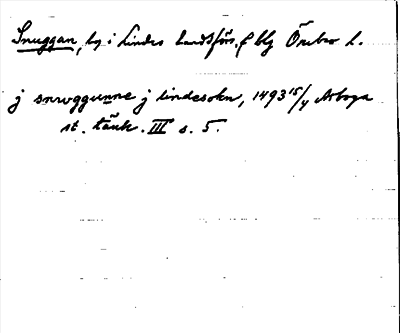 Snuggan, by i Lindes landsförs. f blg Örebro l.
j snwggunne j lindesokn, 1493 15/4 Arboga
st. tänk. III s. 5.